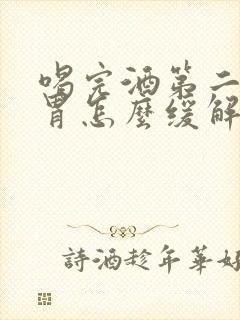 喝完酒第二
胃怎麼緩解
詩酒趁年華好